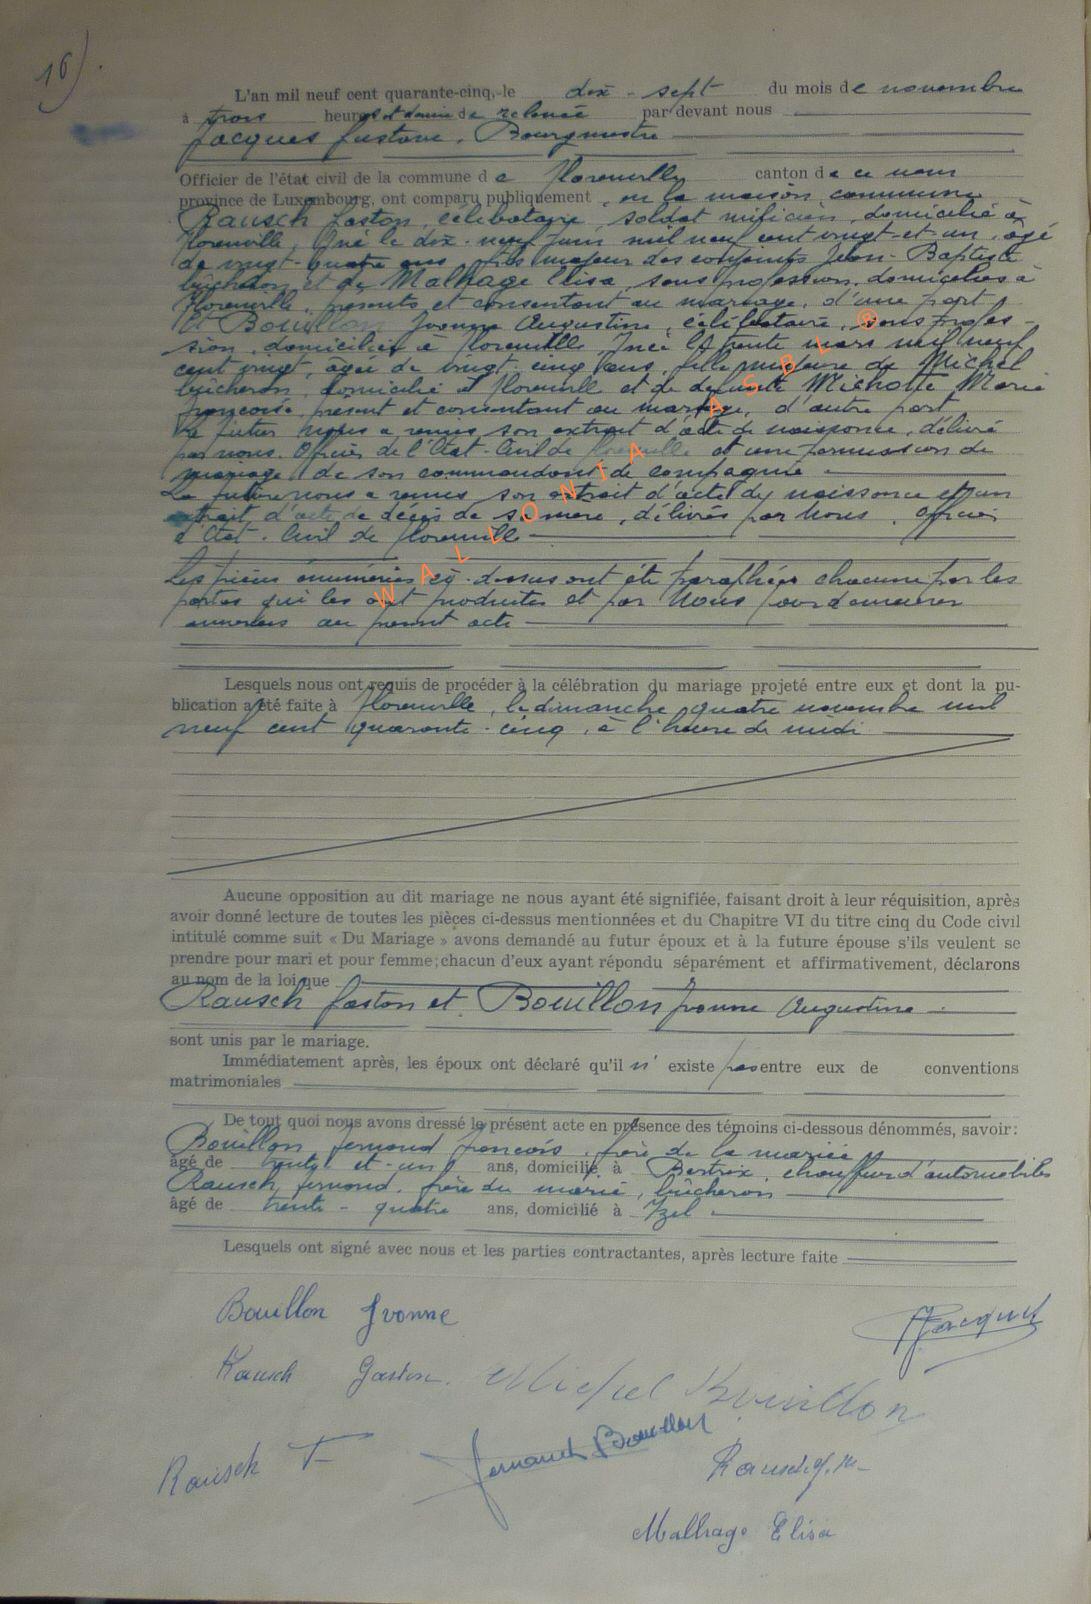 16).
L'an mil neuf cent quarante-cinq, le dix-sept du mois de novembre
à trois heures et demie de relevée par devant nous
Jacques Gustave, Bourgmestre
Officier de l'état civil de la commune de Florenville canton de ce nom
province de Luxembourg, ont comparu publiquement, en la maison communale
Rausch Gaston, célibataire, soldat milicien, domicilié à
Florenville, y né le dix-neuf juin mil neuf cent vingt-et-un, âgé
de vingt-quatre ans, fils majeur des conjoints Jean-Baptiste
bûcheron et de Malhage Elisa, sans profession, domiciliés à
Florenville, présents et consentant au mariage, d'une part
Et Bouillon Yvonne Augustine, célibataire, sans profes-
sion, domiciliée à Florenville, y née le trente mars mil neuf
cent vingt, âgée de vingt-cinq ans, fille majeure de Michel
bûcheron, domicilié à Florenville et de défunte Michotte Marie
Françoise, présent et consentant au mariage, d'autre part
Le futur nous a remis son extrait d'acte de naissance, délivré
par nous, Officier de l'Etat-Civil de Florenville et une permission de
mariage de son commandant de compagnie
La future nous a remis son extrait d'acte de naissance et un
extrait d'acte de décès de sa mère, délivrés par Nous, Officier
d'Etat-Civil de Florenville
Les pièces énumérées ci-dessus ont été paraphées chacune par les
parties qui les ont produites et par Nous pour demeurer
annexées au présent acte
WALLONIA ASBL ®
Lesquels nous ont requis de procéder à la célébration du mariage projeté entre eux et dont la pu-
blication a été faite à Florenville, le dimanche quatre novembre mil
neuf cent quarante-cinq, à l'heure de midi
Aucune opposition au dit mariage ne nous ayant été signifiée, faisant droit à leur réquisition, après
avoir donné lecture de toutes les pièces ci-dessus mentionnées et du Chapitre VI du titre cinq du Code civil
intitulé comme suit « Du Mariage » avons demandé au futur époux et à la future épouse s'ils veulent se
prendre pour mari et pour femme; chacun d'eux ayant répondu séparément et affirmativement, déclarons
au nom de la loi que
Rausch Gaston et Bouillon Yvonne Augustine
sont unis par le mariage.
Immédiatement après, les époux ont déclaré qu'il n'existe pas entre eux de conventions
matrimoniales
De tout quoi nous avons dressé le présent acte en présence des témoins ci-dessous dénommés, savoir:
Bouillon Fernand François, frère de la mariée
âgé de trente-et-un ans, domicilié à Bertrix, chauffeur d'automobiles
Rausch Fernand, frère du marié, bûcheron
âgé de trente-quatre ans, domicilié à Izel.
Lesquels ont signé avec nous et les parties contractantes, après lecture faite
Bouillon Yvonne
Jacques
Rausch Gaston.
Michel Bouillon
Rausch F
Fernand Bouillon
Rausch
Malhage Elisa